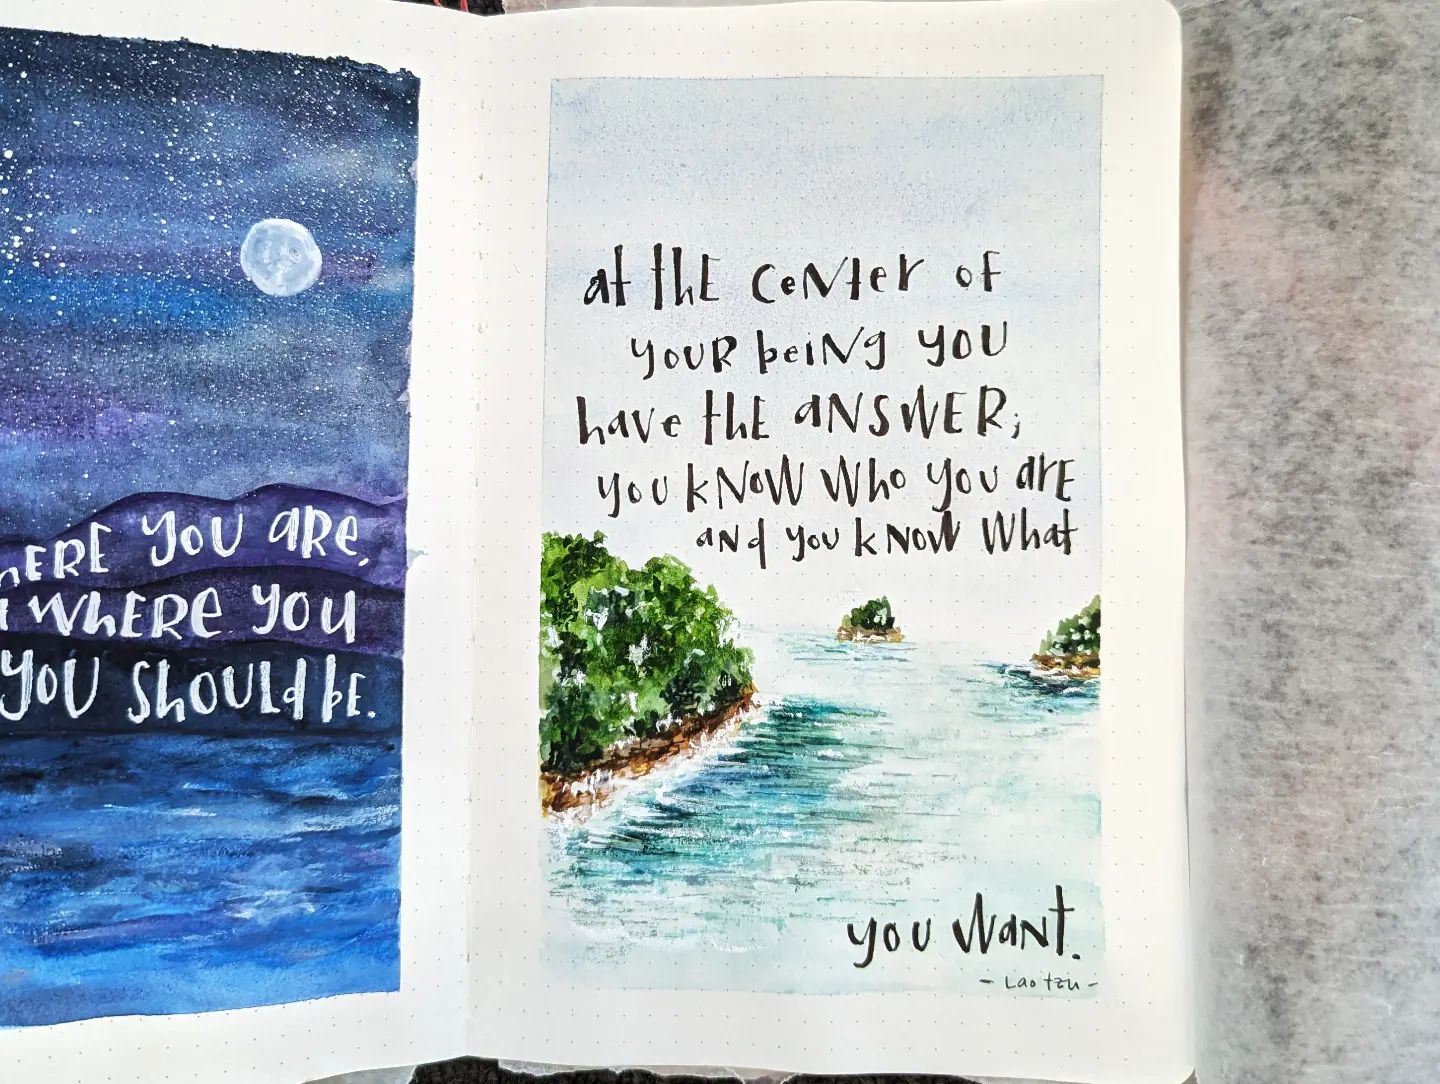 ERE YOU ARE,
WHERE YOU
YOU SHOULD BE.
at the CeNter of
YOUR beiNg YOU
have the aNSWER;
you kNoW Who you are
aNd you kNoW What
you WaNt.
- Lao tzu -